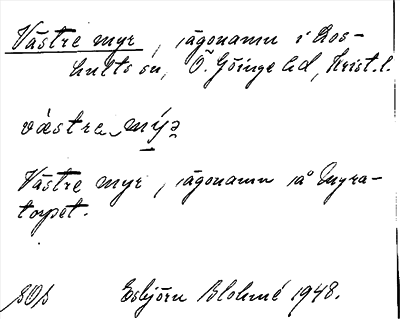 Västre myr, sägonamn i Los-
hults sn, Ö. Göinge hd, Krist. l.
västre mýə
Västre myr, sägonamn på Myra-
torpet.
Esbjörn Blohmé 1948.